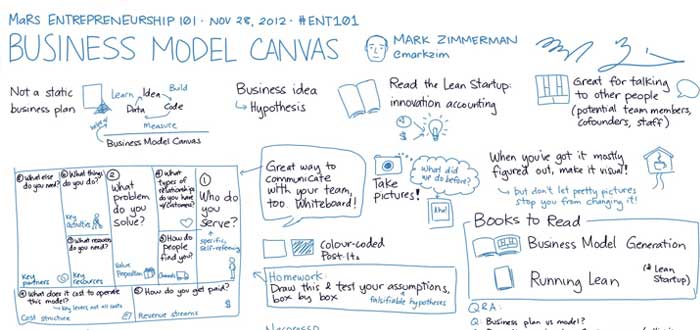 MaRS ENTREPRENEURSHIP 101 · NOV 28, 2012 · #ENT101
BUSINESS MODEL CANVAS
MARK ZIMMERMAN
@markzim
Not a static
business plan
Learn
Idea
Build
Data
Code
Measure
Business Model Canvas
Business idea
Hypothesis
Read the Lean Startup:
innovation accounting
$
Great for talking
to other people
(potential team members,
cofounders, staff)
What else
do you need?
Key
partners
What things
do you do?
Key
activities
What resources
do you need?
Key
resources
②
What
problem
do you
solve?
Value
Proposition
What
types of
relationships
do you have
w/customers?
How do
people
find you?
Channels
①
Who do
you
serve?
specific,
Self-referencing
What does it cost to operate
this model?
key levers, not all costs
Cost structure
How do you get paid?
Revenue streams
$
Great way to
communicate
with your team,
too. Whiteboard!
Take
pictures!
What did
we do before?
Aha!
When you've got it mostly
figured out, make it visual!
but don't let pretty pictures
stop you from changing it!
Colour-coded
Post-Its
Homework:
Draw this & test your assumptions,
box by box
falsifiable hypotheses
Books to Read
Business Model Generation
Running Lean
(& Lean
Startup)
Q&A:
Q Business plan vs model?